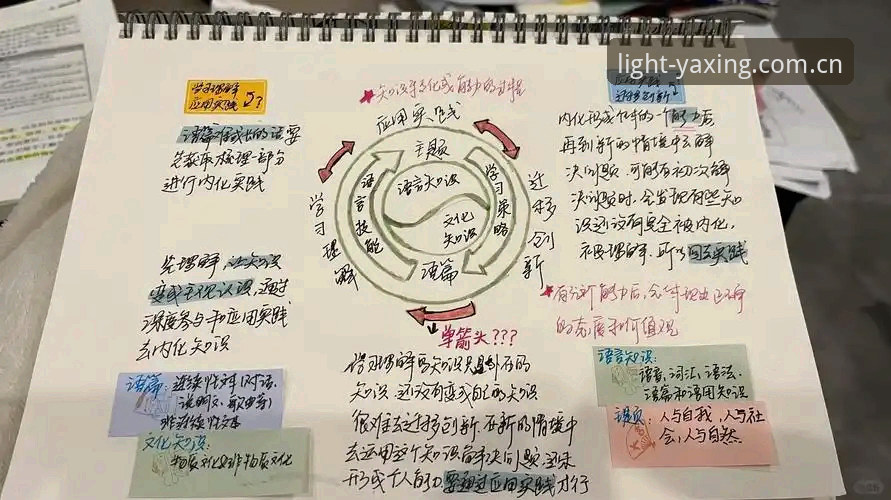 light-yaxing.com.cn
学习理解
应用实践 ?
★知识转化成能力的过程
应用实践
迁移创新
语篇 成长的 需要
先获取梳理一部分
进行内化实践
应用实践
主题
语言知识
文化
知识
语篇
语言技能
学习策略
学习理解
迁移创新
内化形成 的一个能力后
再到新的情境中去解
决问题,可能有初次解
决问题时,会发现有些知
识还没有完全被内化,
被理解,所以回去实践
先理解,让知识
变成主观认识,通过
深度参与和应用实践
去内化知识
★ 能力后,会 出正确
的态度和价值观
↓单箭头???
学习理解 知识只是外在的
知识,还没有变成自己的知识
很难去迁移创新,在新的情境中
去运用这个知识解决问题,
形成个人能力 要通过应用实践才行
语篇:连续性文本(对话、
说明文、 等)
非连续性文本
文化知识:
物质文化与非物质文化
语言知识:
语音、词汇、语法、
语篇和语用知识
主题:人与自我,人与社
会,人与自然